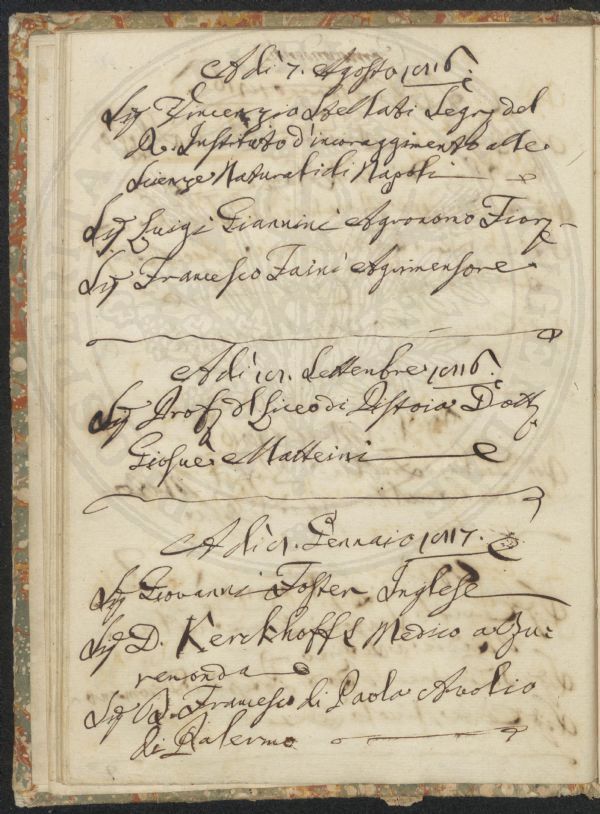 Adì 7. Agosto 1816.
Sig Vincenzio Stellati Segr. del
R. Instituto d'incoraggimento alle
Scienze Naturali di Napoli
Sig Luigi Giannini Agronomo Fior.
Sig Francesco Faini Agrimensore
Adì 18. Settembre 1816.
Sig Prof. del Liceo di Pistoia Dott.
Giosuè Matteini
Adì 8. Gennaio 1817.
Sig Giovanni Foster Inglese
Sig D. Kerckhoffs Medico a Ru=
remonda
Sig D. Francesco di Paola Avolio
di Palermo